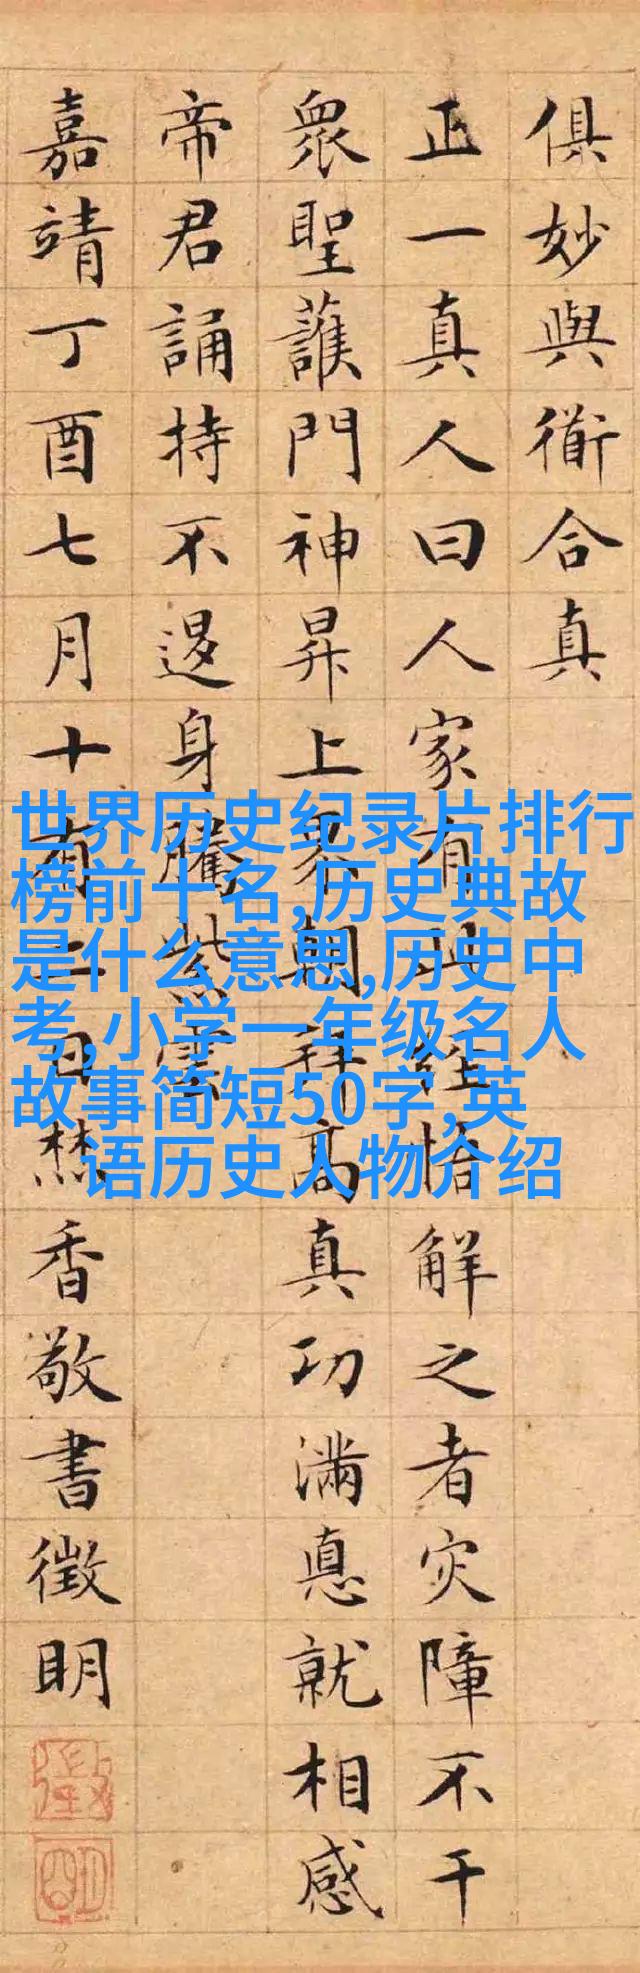 俱妙與衜合真
正一真人曰人家有此經悟解之者灾障不干
衆聖護門神昇上界朝拜高真功滿悳就相感
帝君誦持不退身騰紫雲
嘉靖丁酉七月十有二日焚香敬書徵明
徵
明
世界历史纪录片排行
榜前十名,历史典故
是什么意思,历史中
考,小学一年级名人
故事简短50字,英
语历史人物介绍